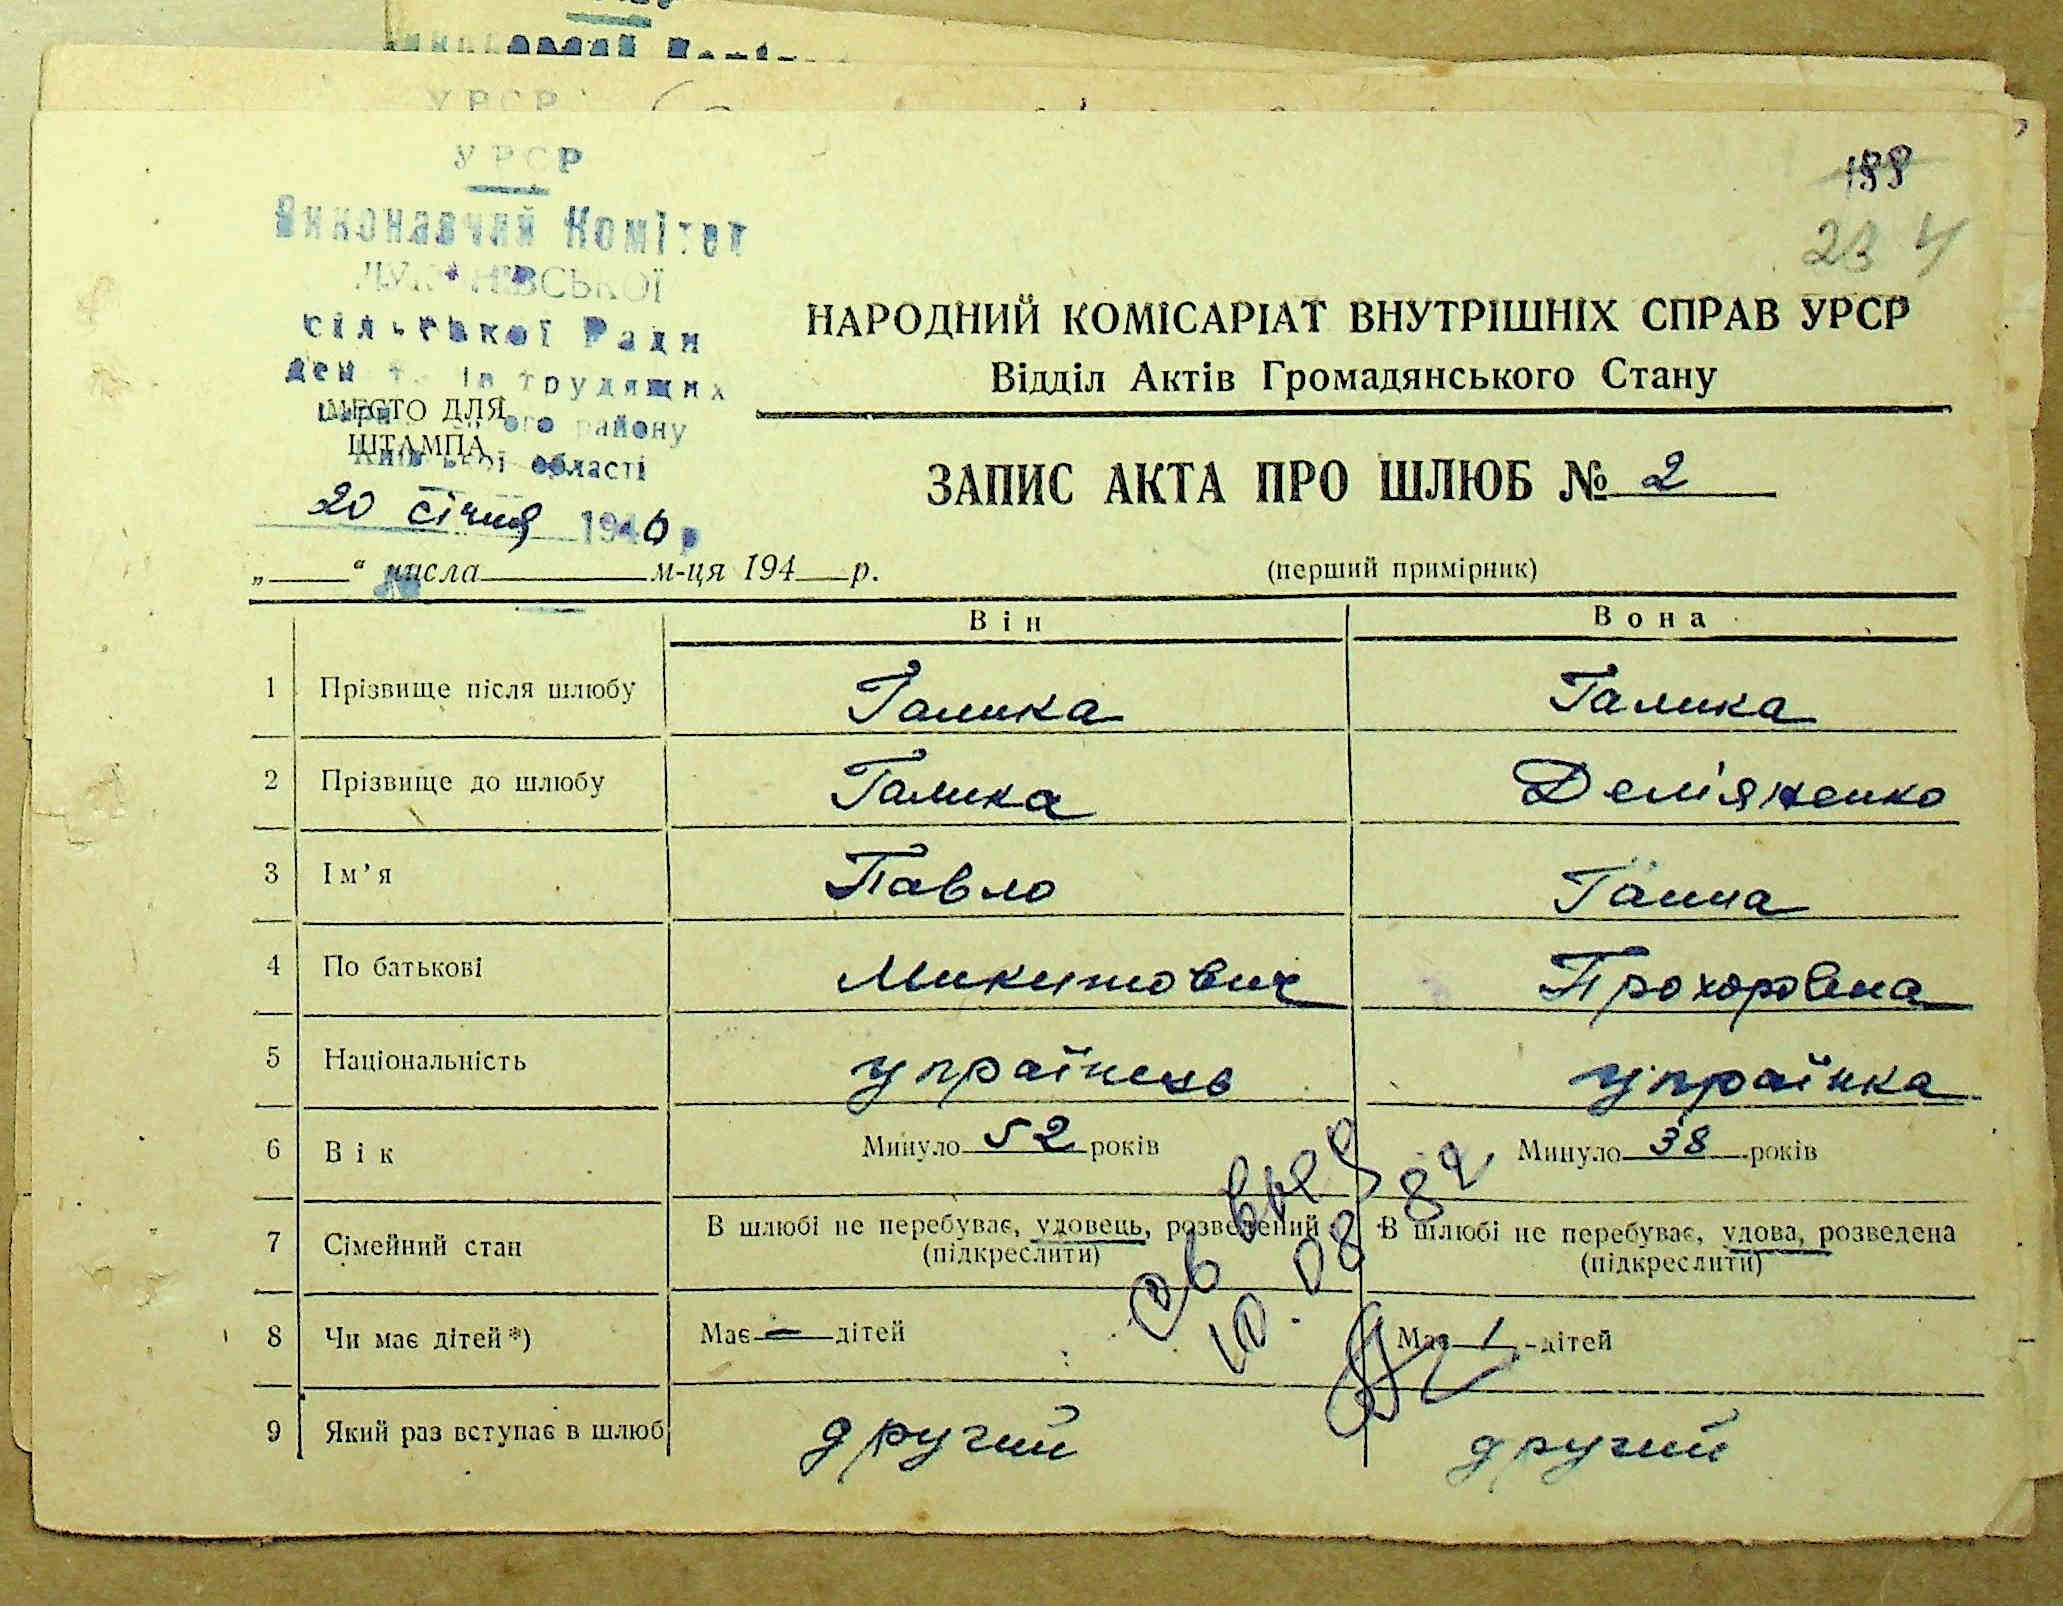 УРСР
УРСР
Виконавчий Комітет
сільської Ради
трудящих
району
МЕСТО ДЛЯ
ШТАМПА
області
20 січня 1940 р
„ “ числа м-ця 194 р.
188
23 4
НАРОДНИЙ КОМІСАРІАТ ВНУТРІШНІХ СПРАВ УРСР
Відділ Актів Громадянського Стану
ЗАПИС АКТА ПРО ШЛЮБ № 2
(перший примірник)
Він Вона
1 Прізвище після шлюбу Галика Галика
2 Прізвище до шлюбу Галика Дем'яненко
3 Ім'я Павло Ганна
4 По батькові Микитович Прохоровна
5 Національність українець українка
6 Вік Минуло 52 років Минуло 38 років
7 Сімейний стан В шлюбі не перебуває, удовець, розведений (підкреслити) В шлюбі не перебуває, удова, розведена (підкреслити)
8 Чи має дітей*) Має — дітей Має 1 дітей
9 Який раз вступає в шлюб другий другий
10.08 82